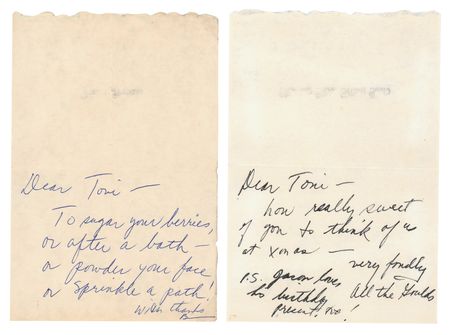 Dear Toni —
To sugar your berries,
or after a bath —
or powder your face
or sprinkle a path!
With thanks
B—
Dear Toni —
how really sweet
of you to think of us
at xmas —
very fondly
All the Goulds
P.S. Jason loves
his birthday
present, too!